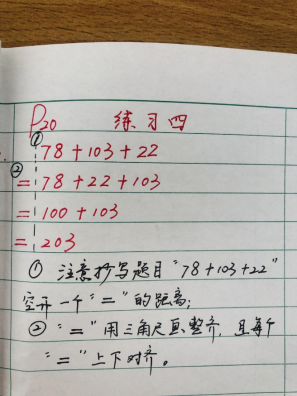 P20 练习四
① 78+103+22
② = 78+22+103
= 100+103
= 203
① 注意抄写题目“78+103+22”
空开一个“=”的距离;
② “=”用三角尺画整齐,且每个
“=”上下对齐。